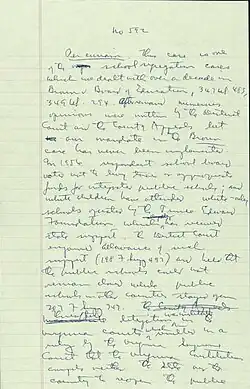 No 592
Per curiam This case is one
of the school segregation cases
which we dealt with over a decade in
Brown v Board of Education, 347 US 483,
349 US 294. numerous
opinions were written by the District
Court and the County Appeals but
our mandate in the Brown
case has never been implemented
In 1954 respondent school board
vote not to levy taxes or appropriate
funds for integrated public schools; and
white children have attended white-only
schools operated by the Prince Edward
Foundation
state support. The District Court
enjoined allowance of such
support (198 F Supp 497) and held that
the public schools could not
remain closed while public
schools in other counties stay open
207 F 349. The County
Virginia courts resulted in a
by the Virginia Supreme
Court that the Virginia Constitution
the
county to reopen the public